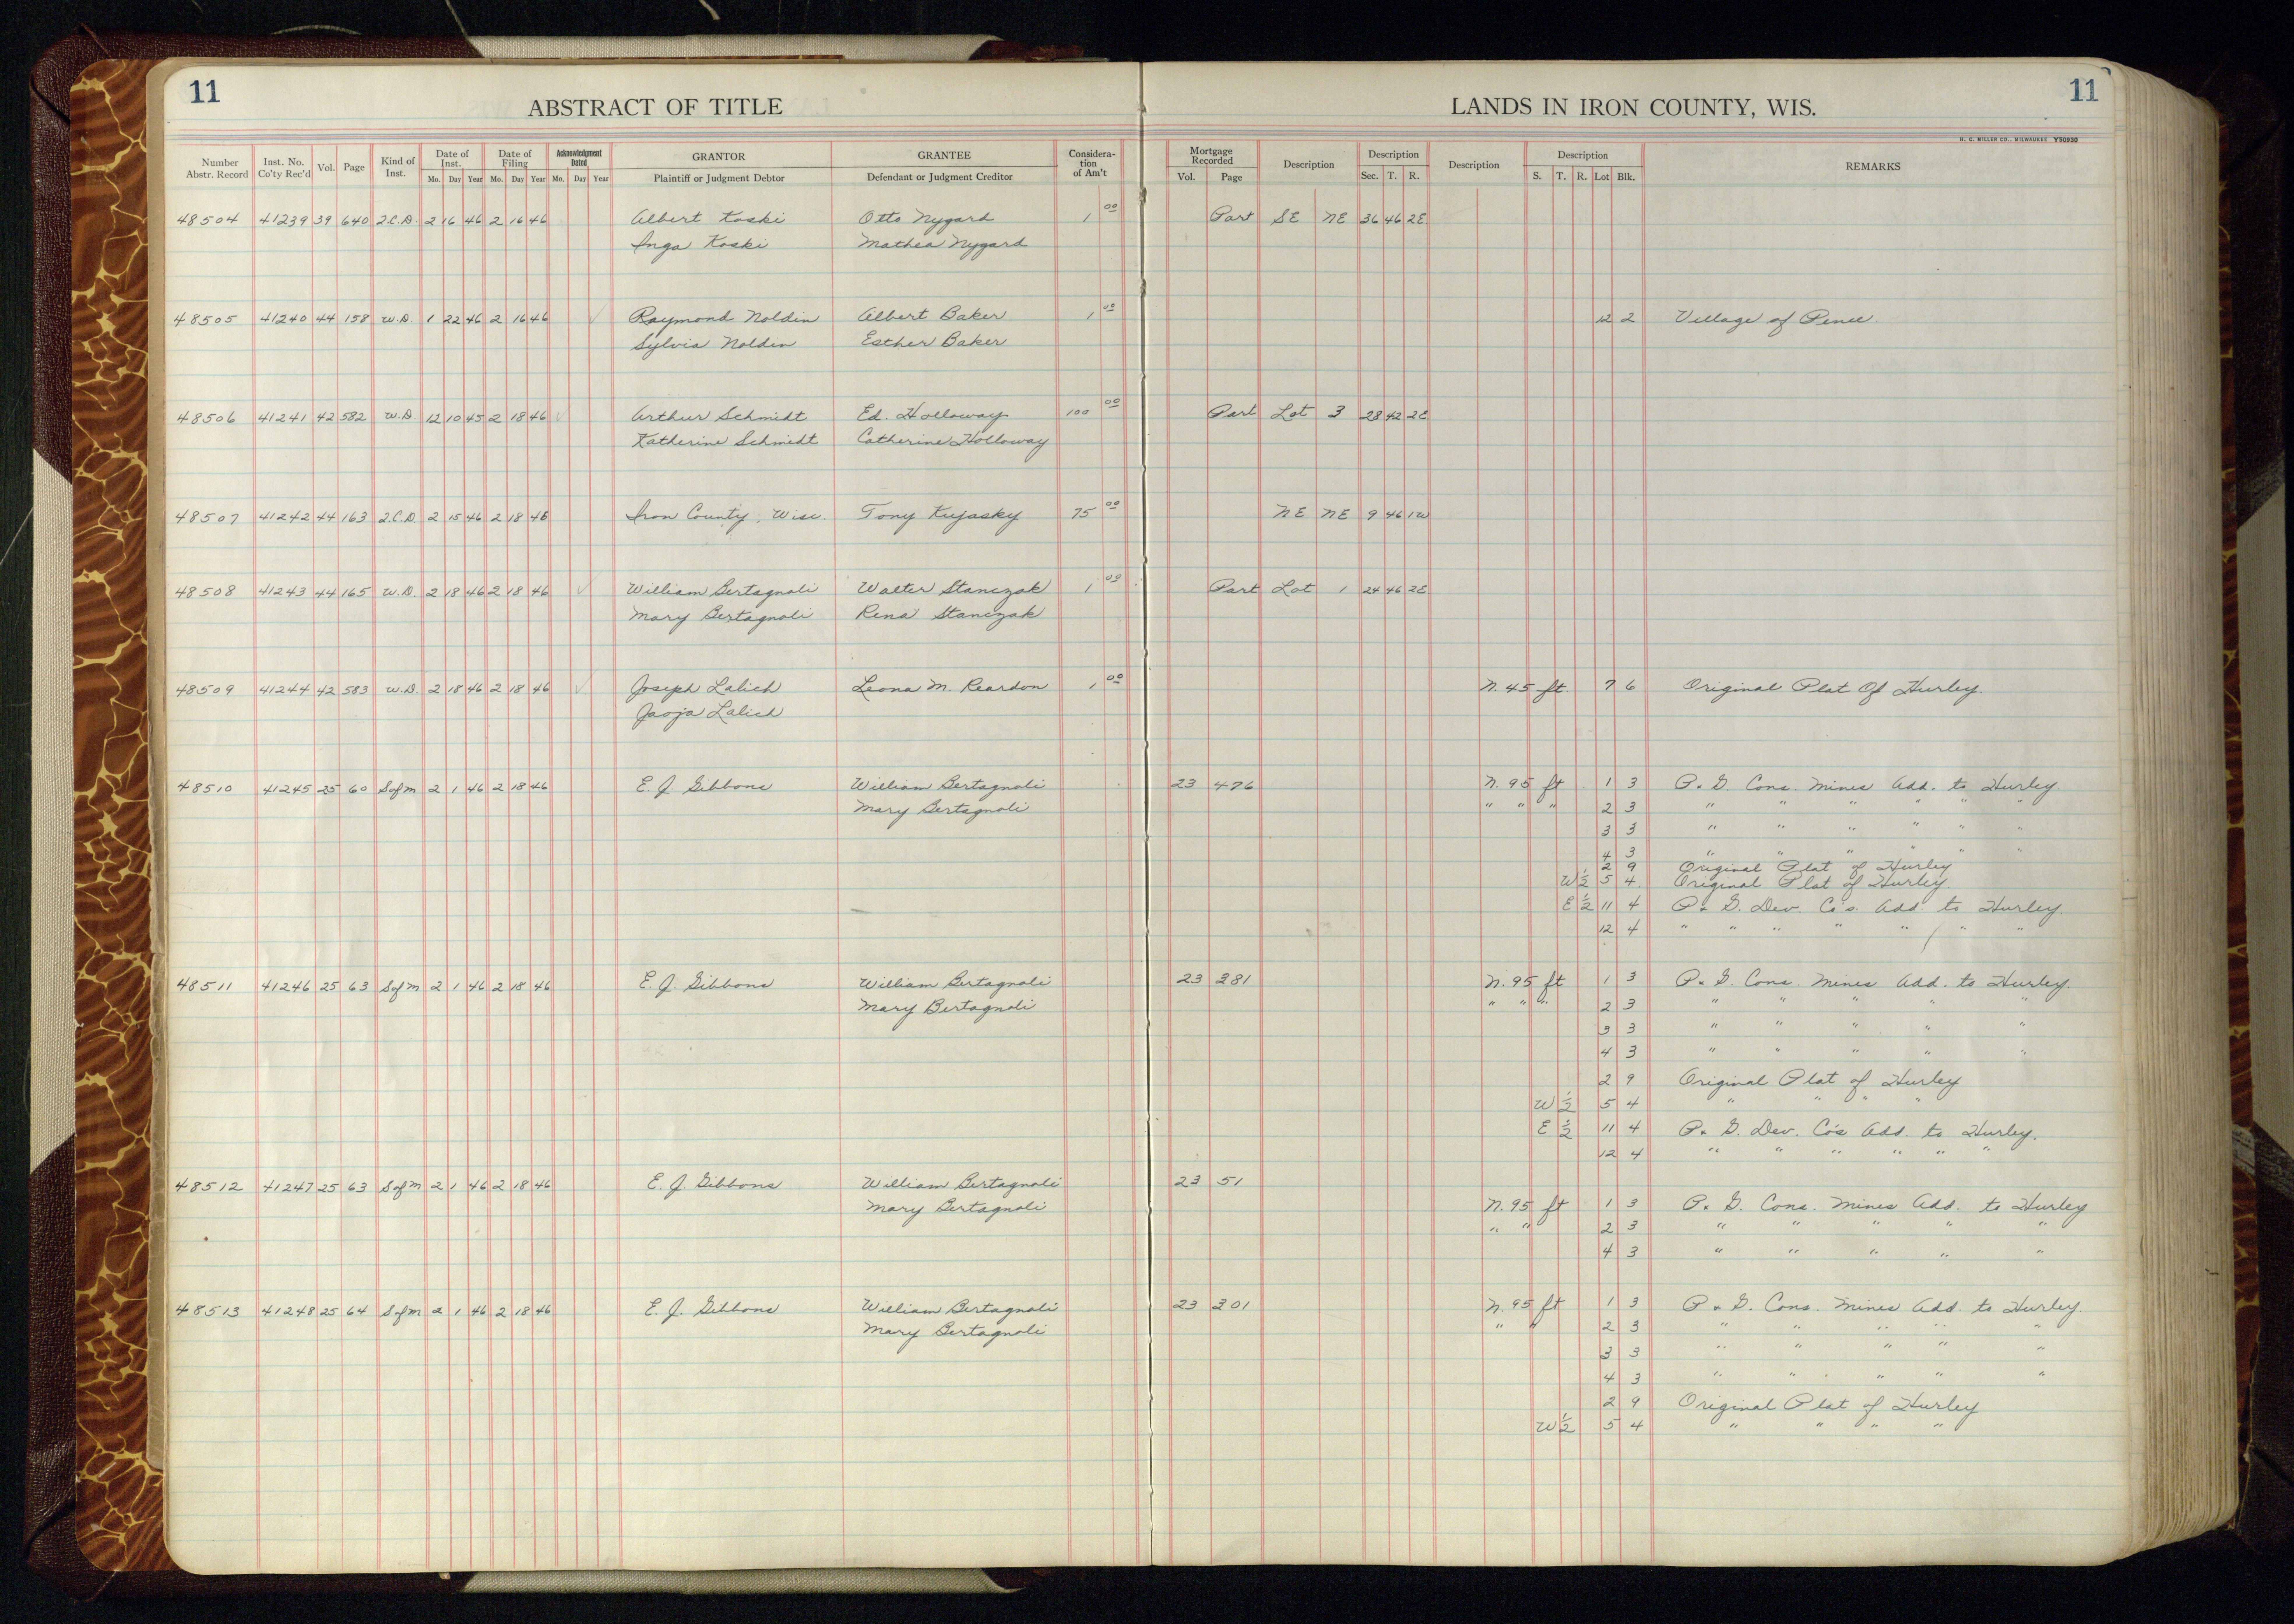 11
ABSTRACT OF TITLE
LANDS IN IRON COUNTY, WIS.
11
N. C. MILLER CO., MILWAUKEE Y50930
Number Abstr. Record Inst. No. Co'ty Rec'd Vol. Page Kind of Inst. Date of Inst. Mo. Day Year Date of Filing Mo. Day Year Acknowledgment Dated Mo. Day Year GRANTOR Plaintiff or Judgment Debtor GRANTEE Defendant or Judgment Creditor Considera-tion of Am't Mortgage Recorded Vol. Page Description Description Sec. T. R. Description Description S. T. R. Lot Blk. REMARKS
48504 41239 39 640 2.C.D. 2 16 46 2 16 46 Albert Koski Otto Nygard 1 00 Part SE NE 36 46 2E
Inga Koski Mathea Nygard
48505 41240 44 158 W.D. 1 22 46 2 16 46 Raymond Noldin Albert Baker 1 00 12 2 Village of Pence
Sylvia Noldin Esther Baker
48506 41241 42 582 W.D. 12 10 45 2 18 46 Arthur Schmidt Ed. Holloway 100 00 Part Lot 3 28 42 2E
Katherine Schmidt Catherine Holloway
48507 41242 44 163 2.C.D. 2 15 46 2 18 46 Iron County, Wisc. Tony Kujasky 75 00 NE NE 9 46 1W
48508 41243 44 165 W.D. 2 18 46 2 18 46 William Bertagnoli Walter Stanczak 1 00 Part Lot 1 24 46 2E
Mary Bertagnoli Rena Stanczak
48509 41244 42 583 W.D. 2 18 46 2 18 46 Joseph Lalich Leona M. Reardon 1 00 N. 45 ft. 7 6 Original Plat Of Hurley.
Lalich
48510 41245 25 60 S of M 2 1 46 2 18 46 E. J. Gibbons William Bertagnoli 23 476 N. 95 ft 1 3 P. & G. Cons. Mines Add. to Hurley
Mary Bertagnoli " " " 2 3 " " " " " "
3 3 " " " " " "
4 3 " " " " " "
2 9 Original Plat of Hurley
W 1/2 5 4 Original Plat of Hurley
E 1/2 11 4 P. & G. Dev. Co's. Add. to Hurley.
12 4 " " " " " " "
48511 41246 25 63 S of M 2 1 46 2 18 46 E. J. Gibbons William Bertagnoli 23 281 N. 95 ft 1 3 P. & G. Cons. Mines Add. to Hurley.
Mary Bertagnoli " " " 2 3 " " " " "
3 3 " " " " "
4 3 " " " " "
2 9 Original Plat of Hurley
W 1/2 5 4 " " " "
E 1/2 11 4 P. & G. Dev. Co's Add. to Hurley.
12 4 " " " " " "
48512 41247 25 63 S of M 2 1 46 2 18 46 E. J. Gibbons William Bertagnoli 23 51
Mary Bertagnoli N. 95 ft 1 3 P. & G. Cons. Mines Add. to Hurley
" " 2 3 " " " " "
4 3 " " " " "
48513 41248 25 64 S of M 2 1 46 2 18 46 E. J. Gibbons William Bertagnoli 23 301 N. 95 ft 1 3 P. & G. Cons. Mines Add. to Hurley.
Mary Bertagnoli " " 2 3 " " " " "
3 3 " " " " "
4 3 " " " " "
2 9 Original Plat of Hurley
W 1/2 5 4 " " " "